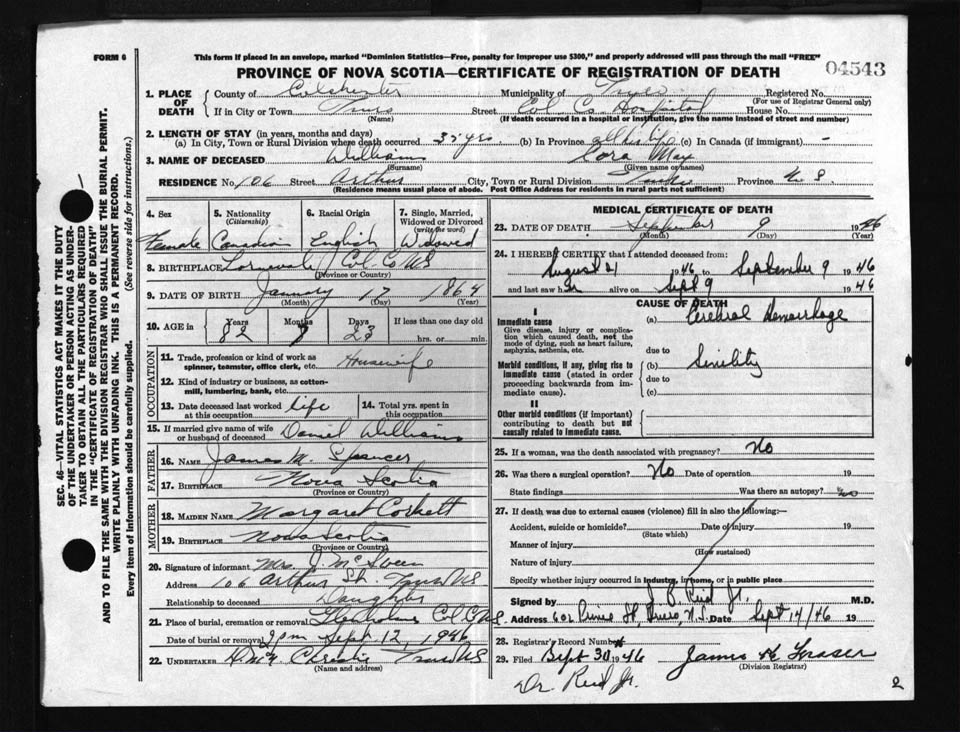 FORM 6
This form if placed in an envelope, marked "Dominion Statistics—Free, penalty for improper use $300," and properly addressed will pass through the mail "FREE"
PROVINCE OF NOVA SCOTIA—CERTIFICATE OF REGISTRATION OF DEATH 04543
1. PLACE OF DEATH County of Colchester Municipality of Truro Registered No.
(For use of Registrar General only)
If in City or Town Truro Street Col Co Hospital House No.
(Name) (If death occurred in a hospital or institution, give the name instead of street and number)
2. LENGTH OF STAY (in years, months and days)
(a) In City, Town or Rural Division where death occurred 35 yrs. (b) In Province all her life (c) In Canada (if immigrant) -
3. NAME OF DECEASED Williams Cora May
(Surname) (Given name or names)
RESIDENCE No. 106 Street Arthur City, Town or Rural Division Truro Province N. S.
(Residence means usual place of abode. Post Office Address for residents in rural parts not sufficient)
4. Sex 5. Nationality (Citizenship) 6. Racial Origin 7. Single, Married, Widowed or Divorced (write the word)
Female Canadian English Widowed
8. BIRTHPLACE Col. Co NS
9. DATE OF BIRTH January 17 1864
(Month) (Day) (Year)
10. AGE in Years Months Days If less than one day old
82 7 23 hrs. or min.
OCCUPATION
11. Trade, profession or kind of work as spinner, teamster, office clerk, etc. Housewife
12. Kind of industry or business, as cotton-mill, lumbering, bank, etc.
13. Date deceased last worked at this occupation life 14. Total yrs. spent in this occupation
15. If married give name of wife or husband of deceased Daniel Williams
FATHER
16. Name James M. Spencer
17. Birthplace Nova Scotia
(Province or Country)
MOTHER
18. Maiden Name Margaret Corbett
19. Birthplace Nova Scotia
(Province or Country)
20. Signature of informant Mrs. J. McSween
Address 106 Arthur St. Truro NS
Relationship to deceased Daughter
21. Place of burial, cremation or removal Glenholme Col Co NS.
Date of burial or removal 2 pm Sept. 12, 1946
22. UNDERTAKER Christie Truro NS
(Name and address)
MEDICAL CERTIFICATE OF DEATH
23. DATE OF DEATH September 9 1946
(Month) (Day) (Year)
24. I HEREBY CERTIFY that I attended deceased from:
August 21 1946 to September 9 1946
and last saw her alive on Sept 9 1946
CAUSE OF DEATH
I
Immediate cause (a) Cerebral Hemorrhage
Give disease, injury or complication which caused death, not the mode of dying, such as heart failure, asphyxia, asthenia, etc.
due to
Morbid conditions, if any, giving rise to immediate cause (stated in order proceeding backwards from immediate cause) (b) Sinility
due to
(c)
II
Other morbid conditions (if important) contributing to death but not causally related to immediate cause.
25. If a woman, was the death associated with pregnancy? No
26. Was there a surgical operation? No Date of operation 19
State findings Was there an autopsy? no
27. If death was due to external causes (violence) fill in also the following:—
Accident, suicide or homicide? Date of injury 19
(State which)
Manner of injury
(How sustained)
Nature of injury
Specify whether injury occurred in industry, in home, or in public place
Signed by J. B. Reid Jr. M.D.
Address 602 Prince St, Truro, N.S. Date Sept 14/46 19
28. Registrar's Record Number
29. Filed Sept 30 1946 James H Fraser
(Division Registrar)
Dr. Reid Jr.
2
SEC. 46—VITAL STATISTICS ACT MAKES IT THE DUTY
OF THE UNDERTAKER OR PERSON ACTING AS UNDER-
TAKER TO OBTAIN ALL THE PARTICULARS REQUIRED
IN THE "CERTIFICATE OF REGISTRATION OF DEATH"
AND TO FILE THE SAME WITH THE DIVISION REGISTRAR WHO SHALL ISSUE THE BURIAL PERMIT.
WRITE PLAINLY WITH UNFADING INK. THIS IS A PERMANENT RECORD.
Every item of information should be carefully supplied. (See reverse side for instructions.)